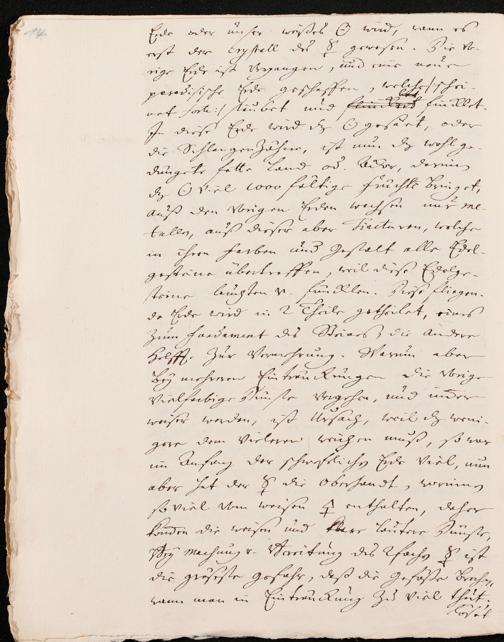 Erde oder unser weißes ☉ wird, wann es
erst der Crystall des ☿ gewesen. Die vo-
rige Erde ist vergangen, und eine neue
paradisische Erde geschaffen, welche
und
In diese Erde wird das ☉ gesäet, oder
die Schlangen Zähne, ist nun das wohl ge-
düngete fette Land od. Acker, darinn
das ☉ viel 1000 fältige Früchte bringet,
auß den vorigen Erden wachsen nur me-
talle, auß dieser aber Tincturen, welche
in ihren Farben und Gestalt alle Edel-
gesteine übertreffen, weil diese Edelge-
steine leuchten u. funcklen. Diese fliegen-
de Erde wird in 2 Theile getheilet, eines
zum Fundament des Steines, die andere
Helfft. zur Vermehrung. Warum aber
bey mehreren Eintränckungen die vorige
vielfarbige Dünste vergehen, und immer
weiser werden, ist Ursach, weil das weni-
gere dem vieleren weichen muß, so war
im Anfang der Erde viel, nun
aber hat der ☿ die Oberhandt, worinn
so viel vom weisen enthalten, daher
kommen die weisen und lautere Dünste,
Bey machung u. Bereitung des ☿ ist
die größeste gefahr, daß die Gefäße brechen,
wann man in Eintränckung zu viel thut.